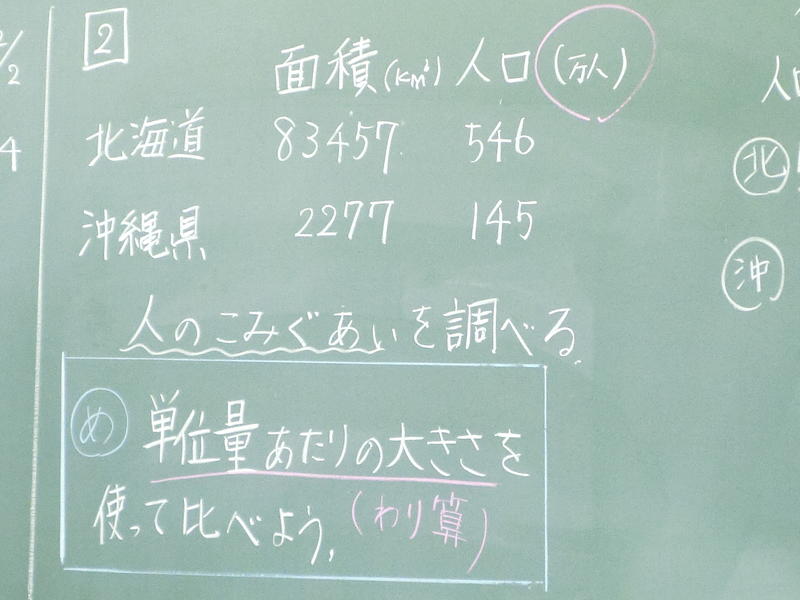 2
面積(km²) 人口(万人)
北海道 83457 546
沖縄県 2277 145
人のこみぐあいを調べる。
め 単位量あたりの大きさを
使って比べよう。(わり算)
2/2
4
人口
北
沖